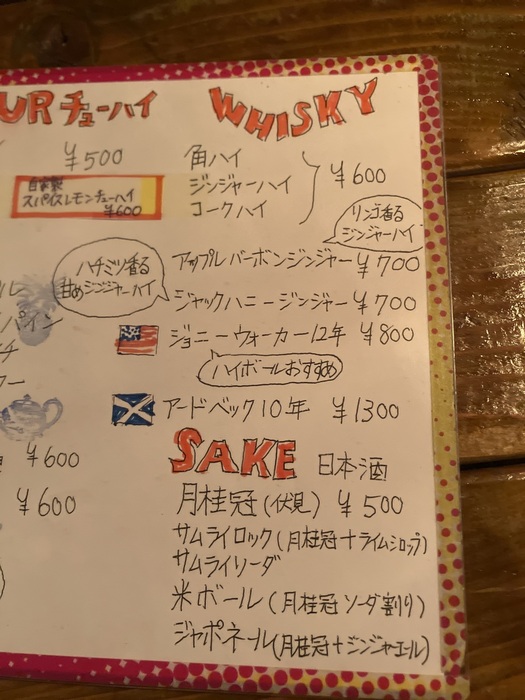 URチューハイ
¥500
自家製
スパイスレモンチューハイ
¥600
ハチミツ香る
甘めジンジャーハイ
パイン
¥600
¥600
WHISKY
角ハイ
ジンジャーハイ
コークハイ
¥600
リンゴ香る
ジンジャーハイ
アップルバーボンジンジャー ¥700
ジャックハニージンジャー ¥700
ジョニーウォーカー12年 ¥800
ハイボールおすすめ
アードベック10年 ¥1300
SAKE 日本酒
月桂冠(伏見) ¥500
サムライロック(月桂冠+ライムシロップ)
サムライソーダ
米ボール(月桂冠ソーダ割り)
ジャポネール(月桂冠+ジンジャエール)